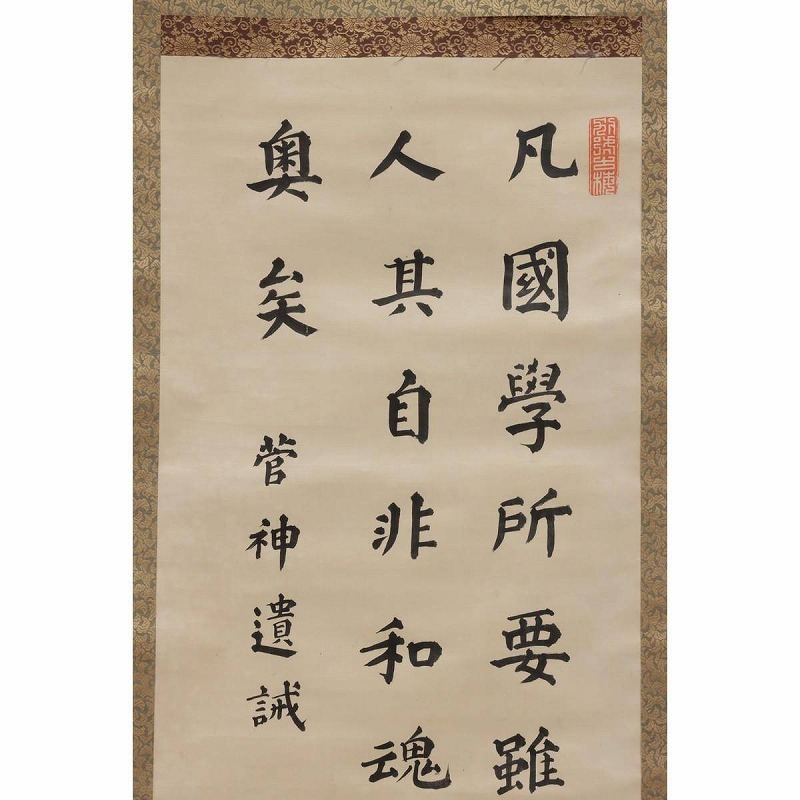 凡國學所要雖
人其自非和魂
奥矣
菅神遺誡